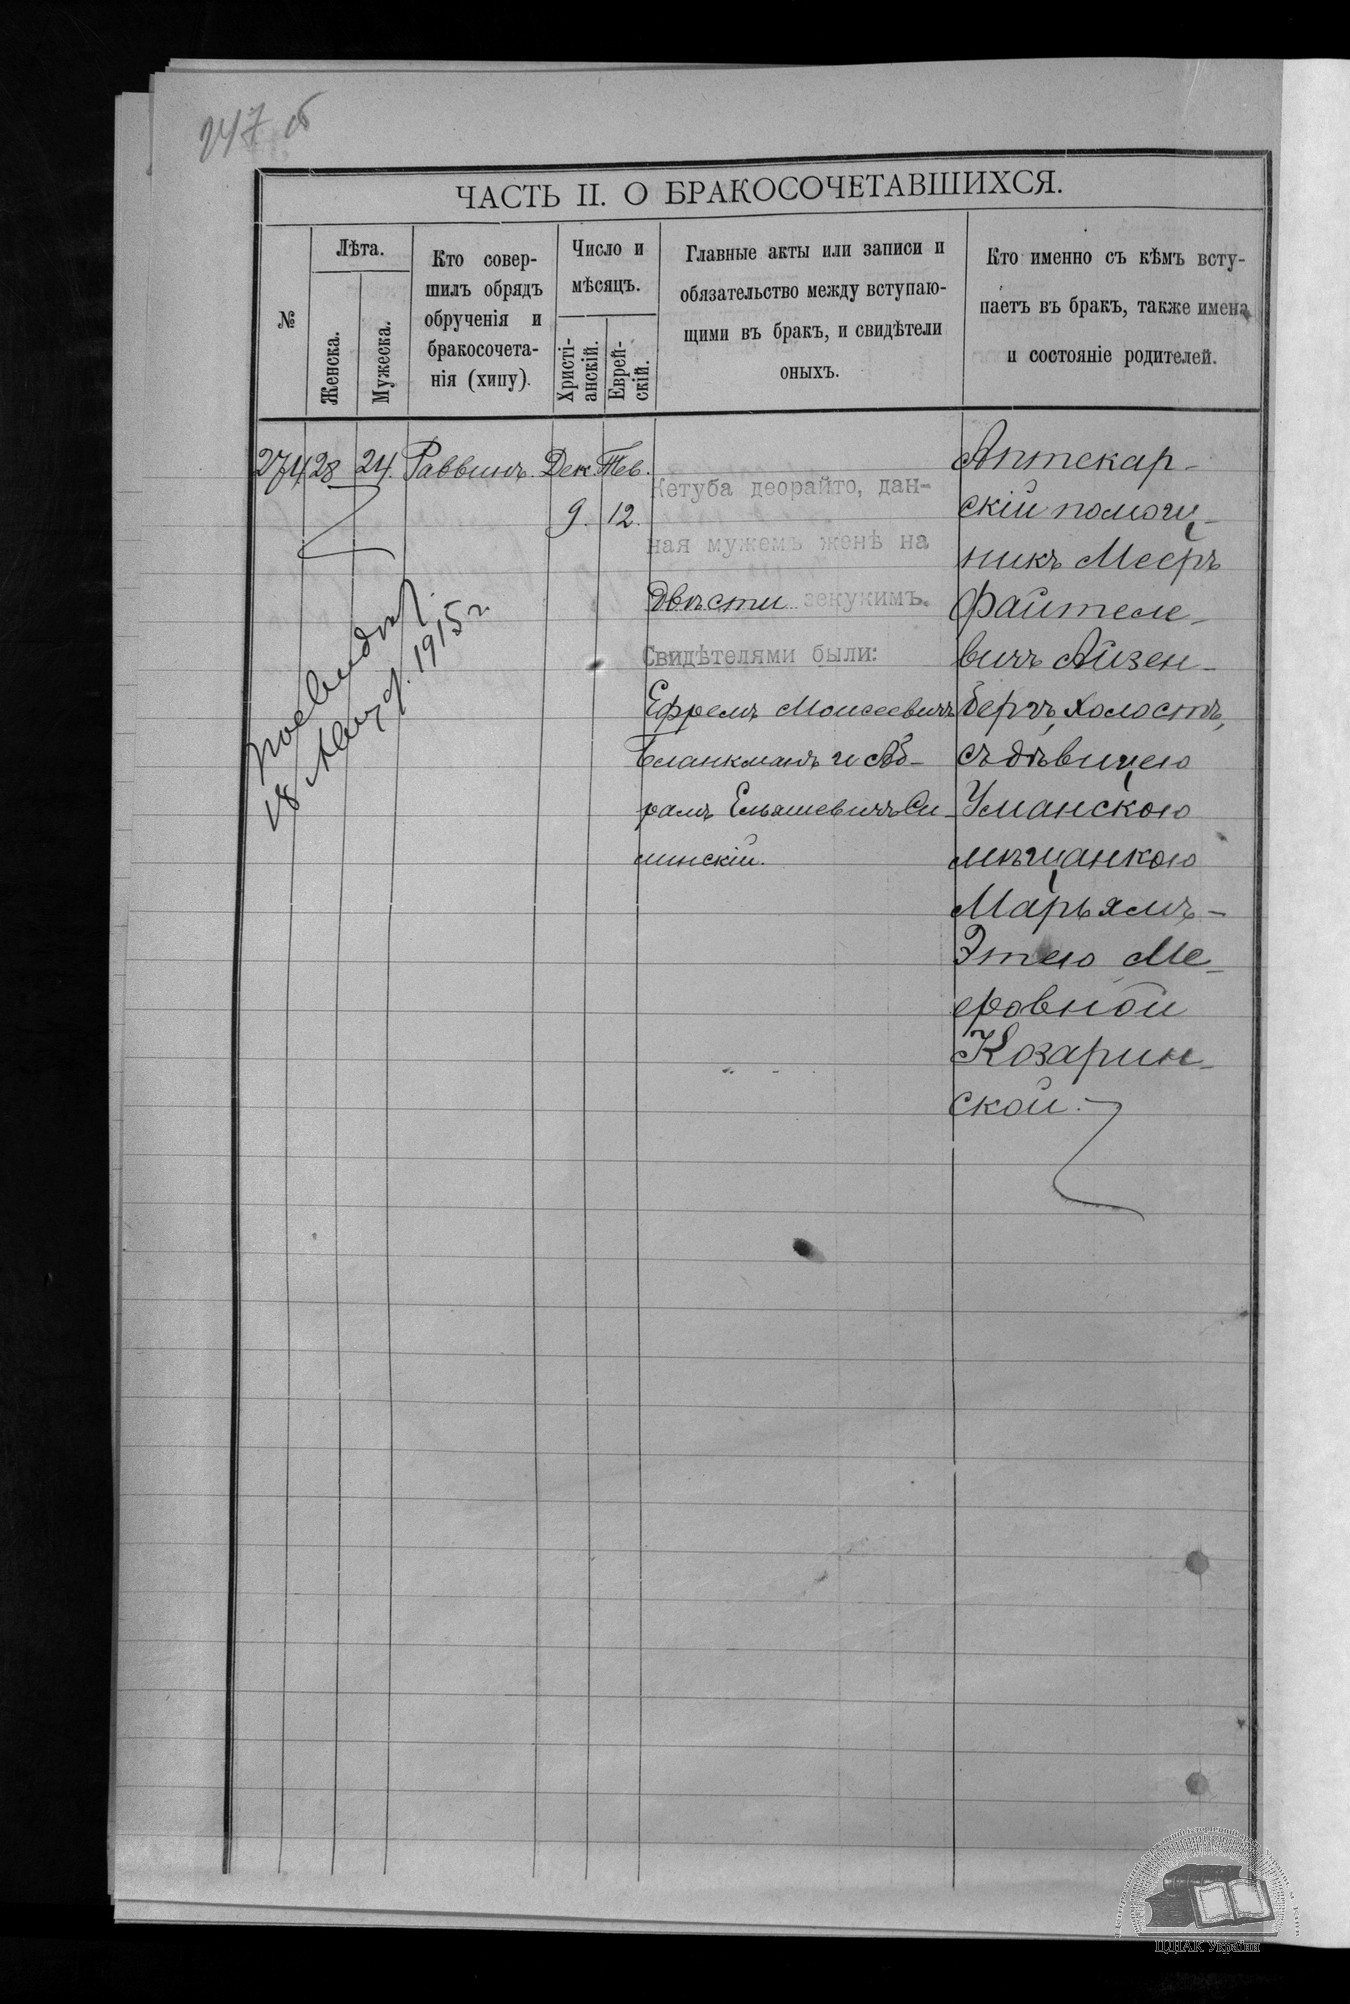 247 об
ЧАСТЬ II. О БРАКОСОЧЕТАВШИХСЯ.
№
Лѣта.
Женска.
Мужеска.
Кто совер-
шилъ обрядъ
обрученія и
бракосочета-
нія (хипу).
Число и
мѣсяцъ.
Христі-
анскій.
Еврей-
скій.
Главные акты или записи и
обязательство между вступаю-
щими въ бракъ, и свидѣтели
оныхъ.
Кто именно съ кѣмъ всту-
паетъ въ бракъ, также имена
и состояніе родителей.
274 28 24. Раввинъ. Дек. Тев.
9. 12.
18 1915 г.
Кетуба деорайто, дан-
ная мужемъ женѣ на
двѣсти зекукимъ.
Свидѣтелями были:
Ефремъ Моисеевичъ
Бланкманъ и Аб-
рамъ Ельяшевичъ Си
минскій.
Аптекар-
скій помощ-
никъ Мееръ
Файтеле-
вичъ Айзен-
бергъ, холостъ,
съ дѣвицею
Уманскою
мѣщанкою
Марьямъ-
Этею Ме-
еровной
Козарин-
ской.
ЦДІАК України